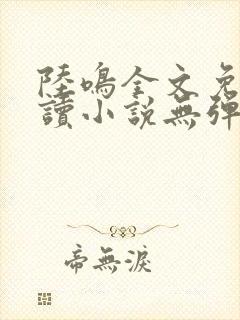 陸鳴全文免
讀小說無彈
帝無淚